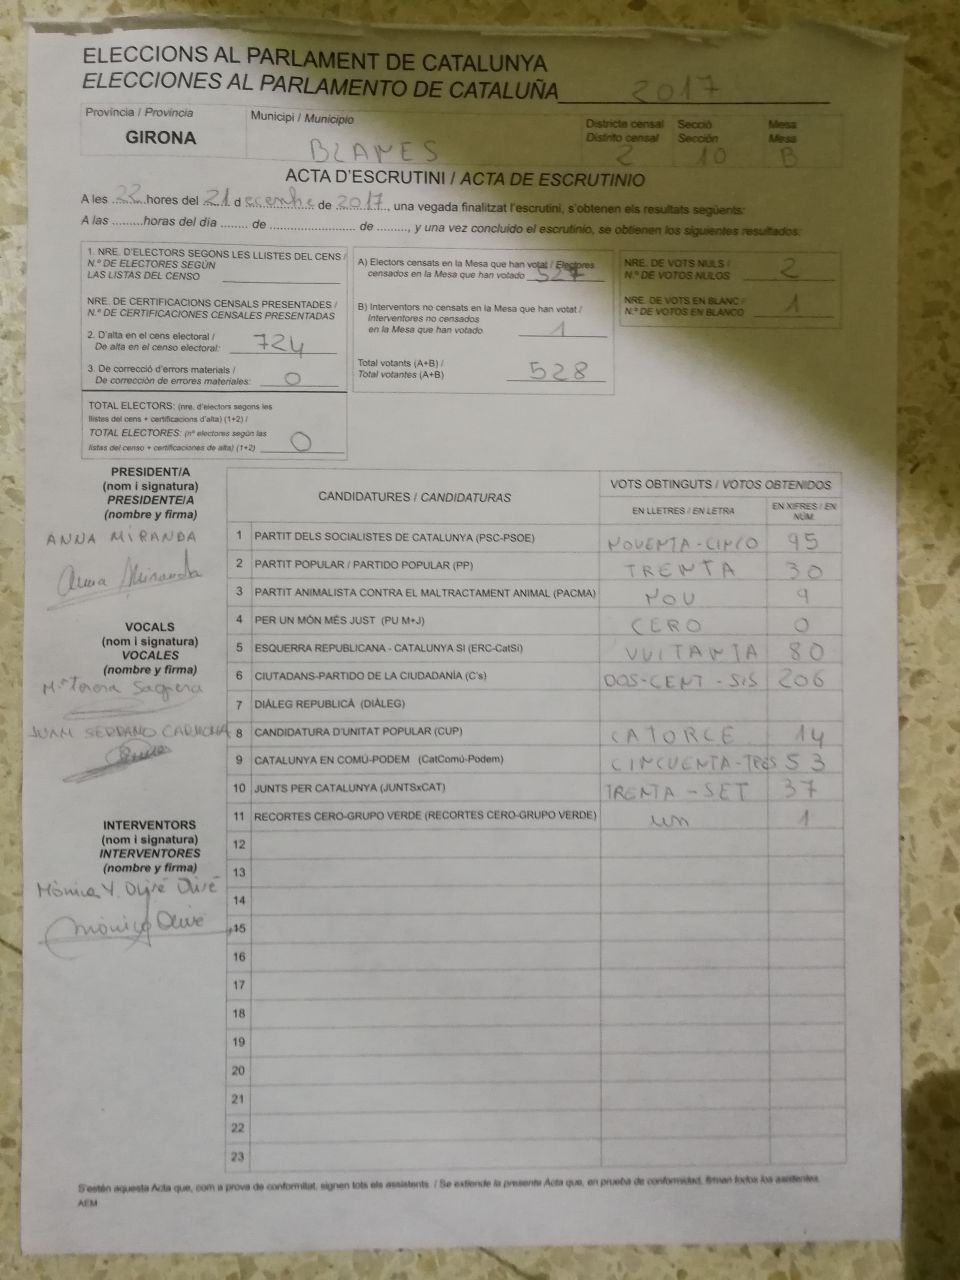 ELECCIONS AL PARLAMENT DE CATALUNYA
ELECCIONES AL PARLAMENTO DE CATALUÑA 2017
Província / Provincia
GIRONA
Municipi / Municipio
BLANES
Districte censal
Distrito censal
2
Secció
Sección
10
Mesa
Mesa
B
ACTA D'ESCRUTINI / ACTA DE ESCRUTINIO
A les 22 hores del 21 d ecembre de 2017, una vegada finalitzat l'escrutini, s'obtenen els resultats següents:
A las .........horas del día ........ de .......................... de ........., y una vez concluido el escrutinio, se obtienen los siguientes resultados:
1. NRE. D'ELECTORS SEGONS LES LLISTES DEL CENS /
N.º DE ELECTORES SEGÚN
LAS LISTAS DEL CENSO
NRE. DE CERTIFICACIONS CENSALS PRESENTADES /
N.º DE CERTIFICACIONES CENSALES PRESENTADAS
2. D'alta en el cens electoral /
De alta en el censo electoral: 724
3. De correcció d'errors materials /
De corrección de errores materiales: 0
TOTAL ELECTORS: (nre. d'electors segons les
llistes del cens + certificacions d'alta) (1+2) /
TOTAL ELECTORES: (nº electores según las
listas del censo + certificaciones de alta) (1+2) 0
A) Electors censats en la Mesa que han votat / Electores
censados en la Mesa que han votado 527
B) Interventors no censats en la Mesa que han votat /
Interventores no censados
en la Mesa que han votado 1
Total votants (A+B) /
Total votantes (A+B) 528
NRE. DE VOTS NULS /
N.º DE VOTOS NULOS 2
NRE. DE VOTS EN BLANC /
N.º DE VOTOS EN BLANCO 1
PRESIDENT/A
(nom i signatura)
PRESIDENTE/A
(nombre y firma)
ANNA MIRANDA
Anna Miranda
VOCALS
(nom i signatura)
VOCALES
(nombre y firma)
Mª Teresa Sagrera
JUAN SERRANO CARMONA
INTERVENTORS
(nom i signatura)
INTERVENTORES
(nombre y firma)
Mònica Olivé
CANDIDATURES / CANDIDATURAS
VOTS OBTINGUTS / VOTOS OBTENIDOS
EN LLETRES / EN LETRA
EN XIFRES / EN NÚM.
1 PARTIT DELS SOCIALISTES DE CATALUNYA (PSC-PSOE) NOVENTA-CINCO 95
2 PARTIT POPULAR / PARTIDO POPULAR (PP) TRENTA 30
3 PARTIT ANIMALISTA CONTRA EL MALTRACTAMENT ANIMAL (PACMA) NOU 9
4 PER UN MÓN MÉS JUST (PU M+J) CERO 0
5 ESQUERRA REPUBLICANA - CATALUNYA SI (ERC-CatSí) VUITANTA 80
6 CIUTADANS-PARTIDO DE LA CIUDADANÍA (C's) DOS-CENT-SIS 206
7 DIÀLEG REPUBLICÀ (DIÀLEG)
8 CANDIDATURA D'UNITAT POPULAR (CUP) CATORCE 14
9 CATALUNYA EN COMÚ-PODEM (CatComú-Podem) CINCUENTA-TRES 53
10 JUNTS PER CATALUNYA (JUNTSxCAT) TRENTA-SET 37
11 RECORTES CERO-GRUPO VERDE (RECORTES CERO-GRUPO VERDE) un 1
12
13
14
15
16
17
18
19
20
21
22
23
S'estén aquesta Acta que, com a prova de conformitat, signen tots els assistents. / Se extiende la presente Acta que, en prueba de conformidad, firman todos los asistentes.
AEM